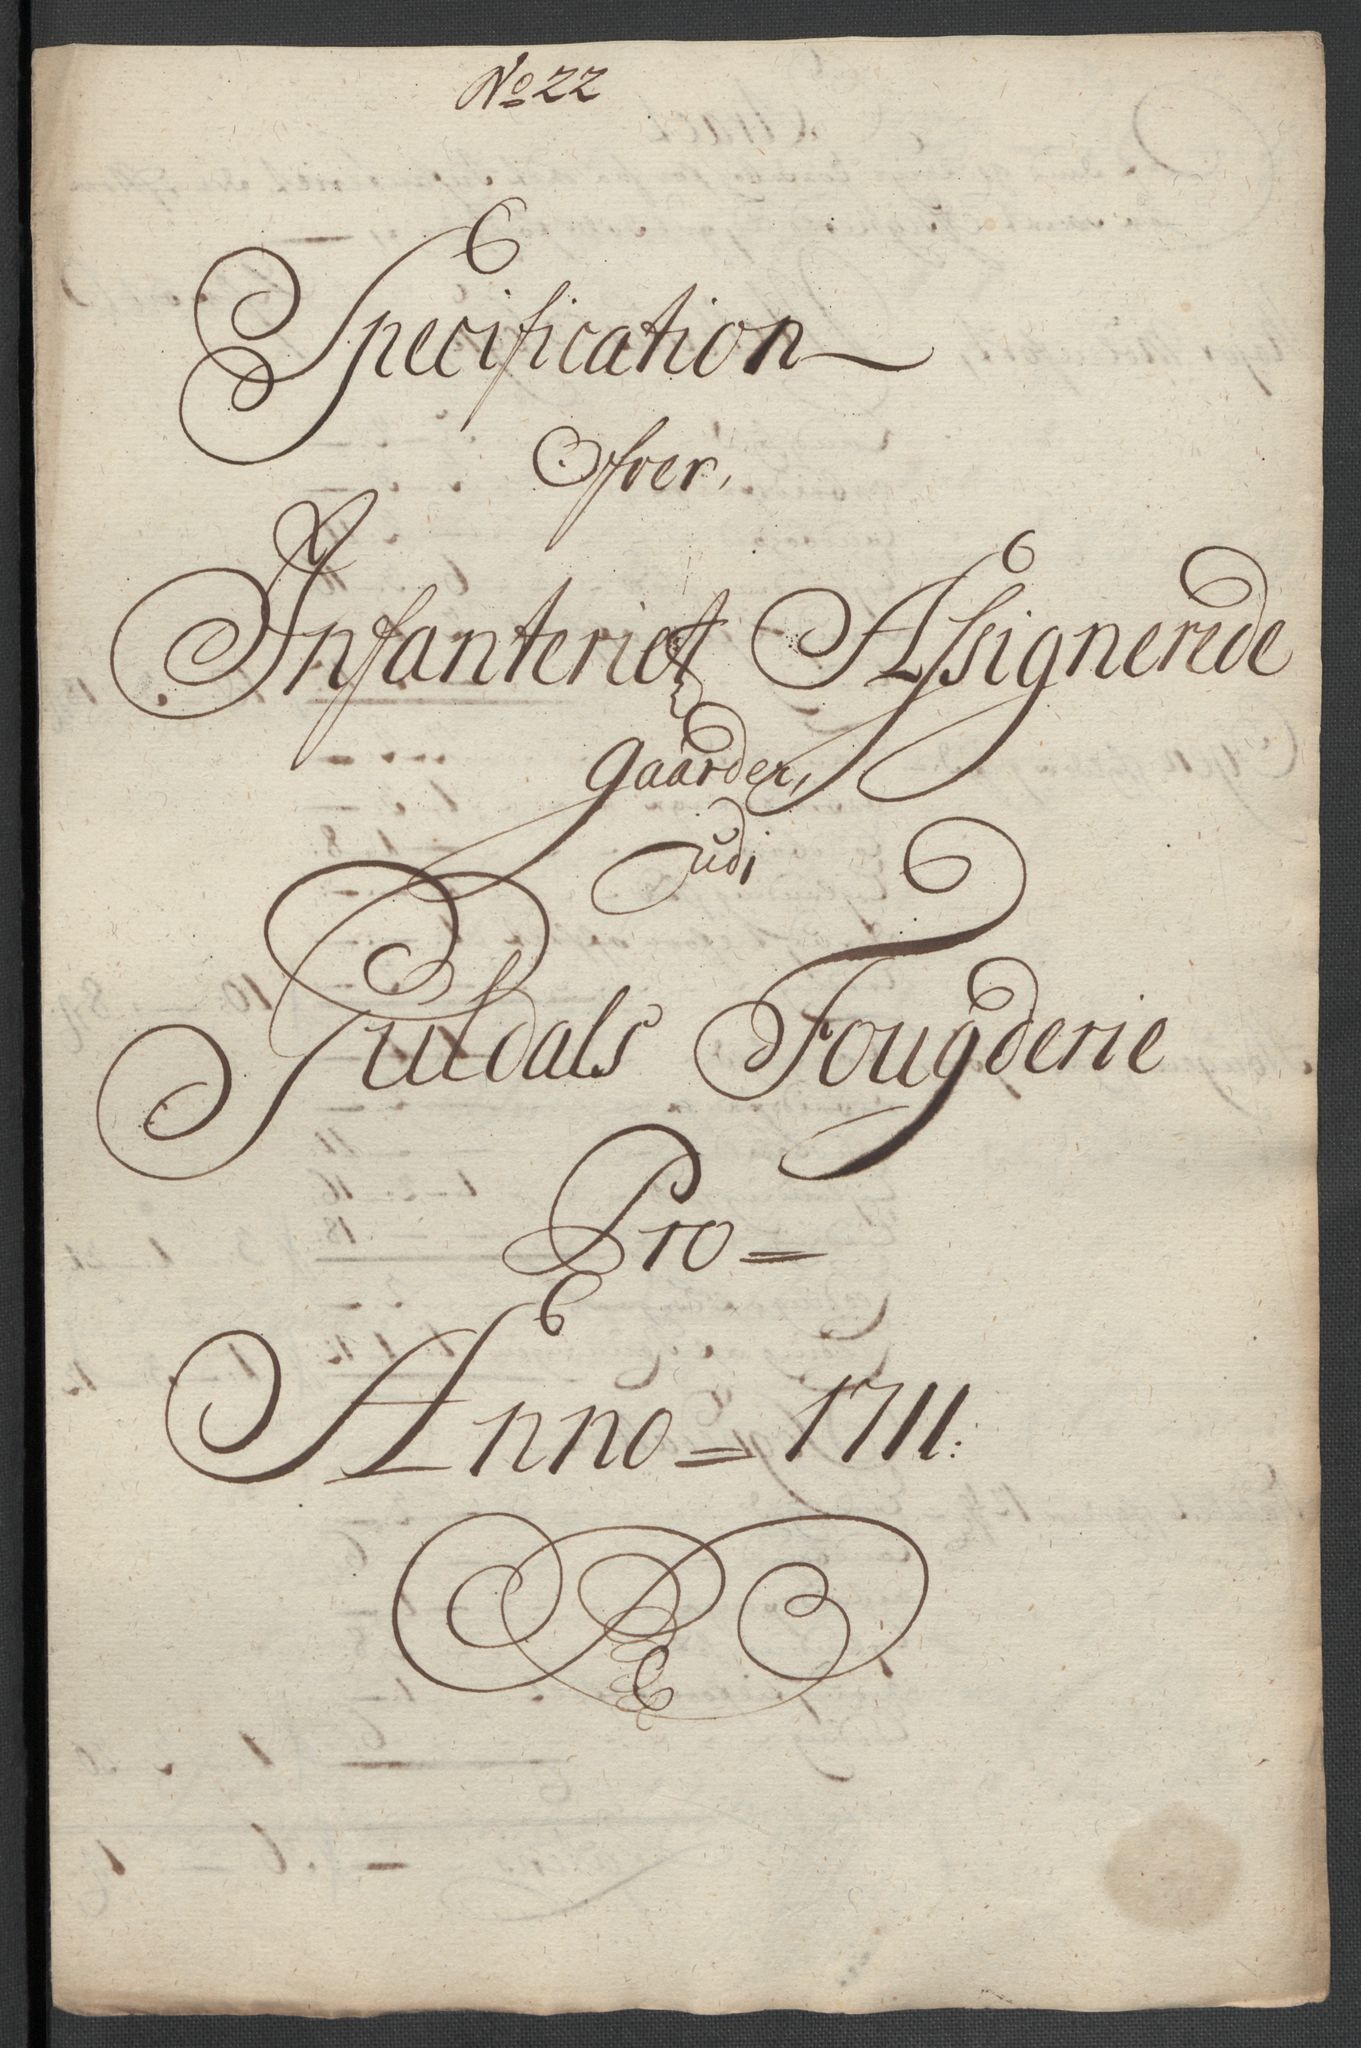 No 22
Specification
Ofver,
Infanteriet Assignerede
gaarder,
udi
Guldals Fougderie
Pro
Anno 1711: